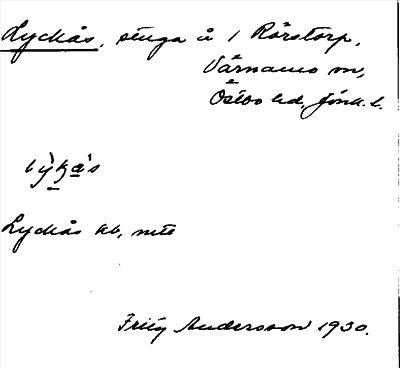 Lyckås, stuga å 1 Rörstorp,
Värnamo sn,
Östbo hd, Jönk. l.
Lyckås kb, nele
Fritz Andersson 1930.